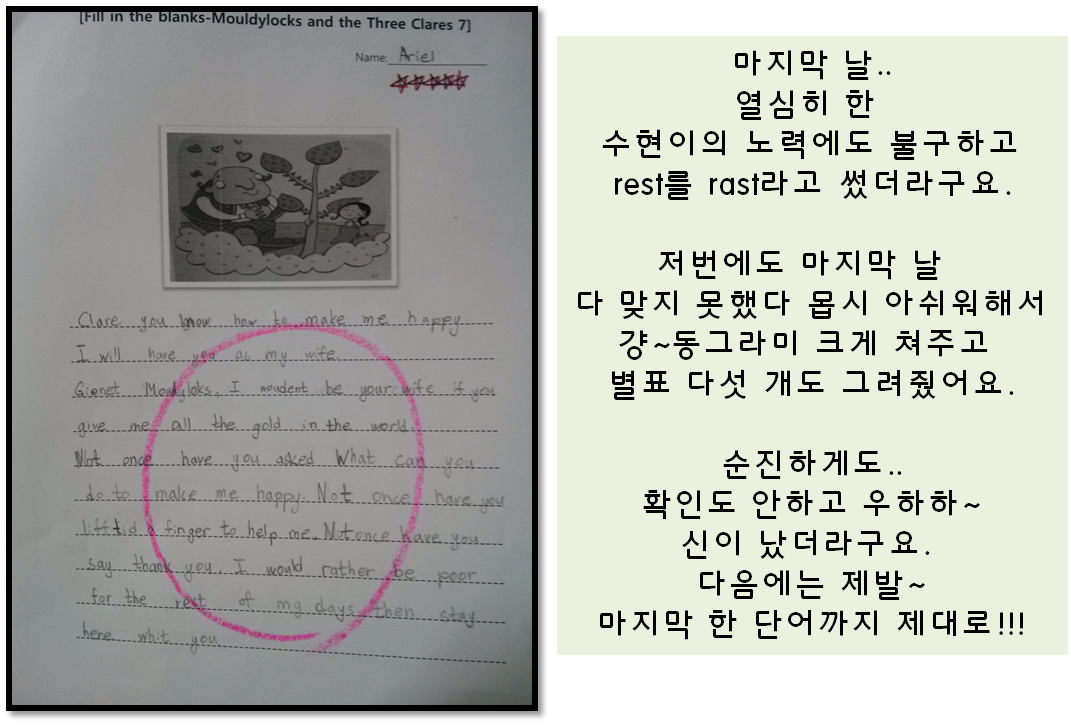 [Fill in the blanks-Mouldylocks and the Three Clares 7]
Name: Ariel
Clare you know how to make me happy.
I will have you as my wife.
Gionet Mouldyloks, I woudent be your wife if you
give me all the gold in the world.
Not once have you asked What can you
do to make me happy. Not once have you
lifftid a finger to help me. Not once have you
say thank you. I would rather be poor
for the rest of my days then stay
here whit you
마지막 날..
열심히 한
수현이의 노력에도 불구하고
rest를 rast라고 썼더라구요.
저번에도 마지막 날
다 맞지 못했다 몹시 아쉬워해서
걍~동그라미 크게 쳐주고
별표 다섯 개도 그려줬어요.
순진하게도..
확인도 안하고 우하하~
신이 났더라구요.
다음에는 제발~
마지막 한 단어까지 제대로!!!